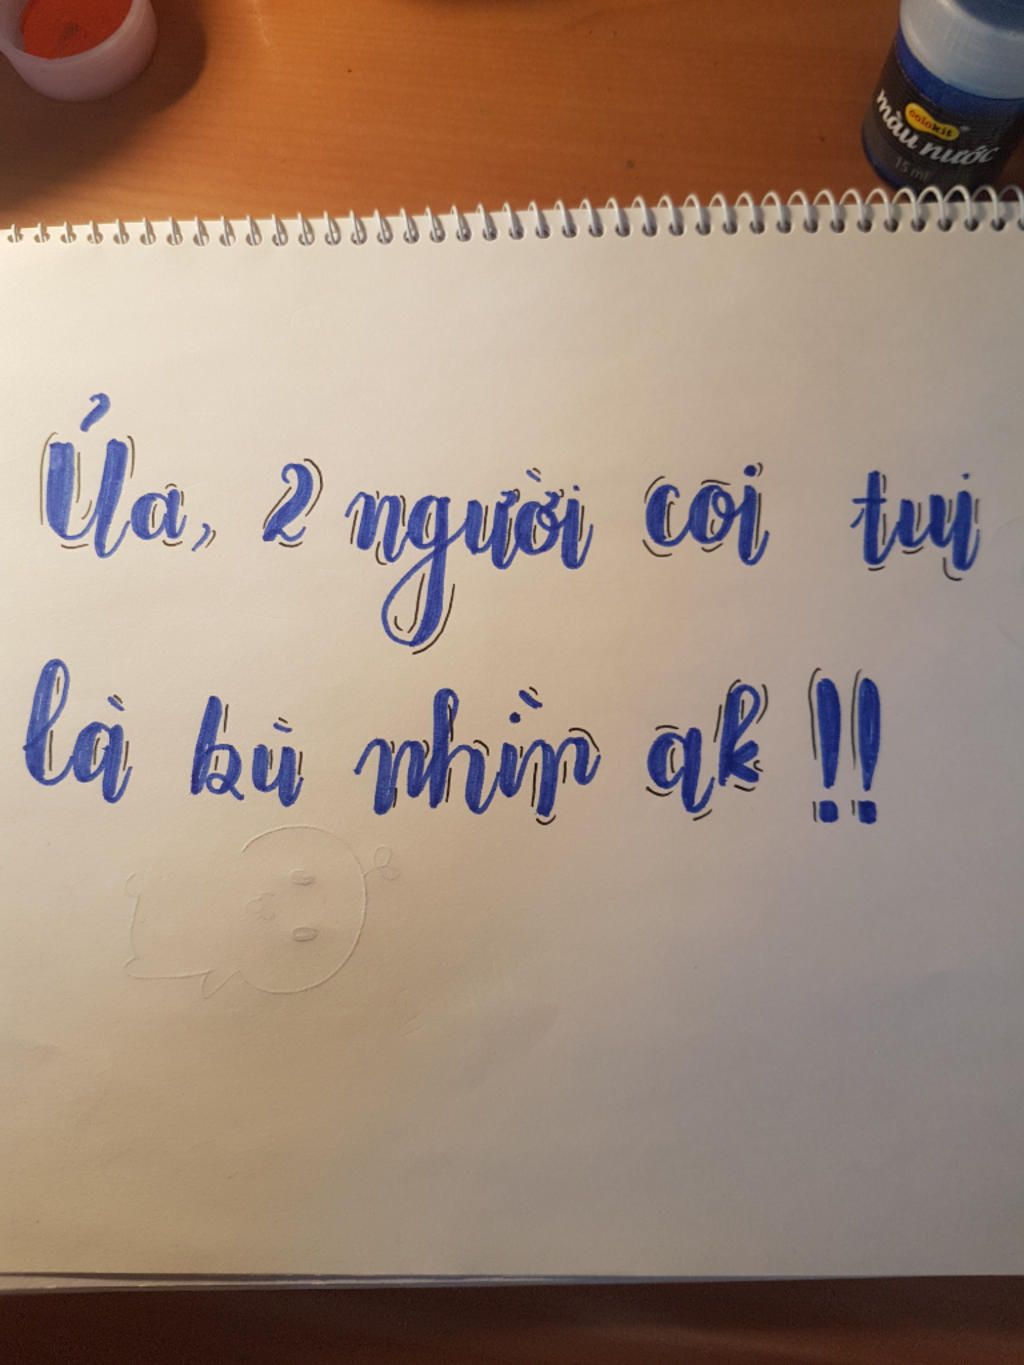 colokit
màu nước
15 ml
Ủa, 2 người coi tui
là bù nhìn ak !!